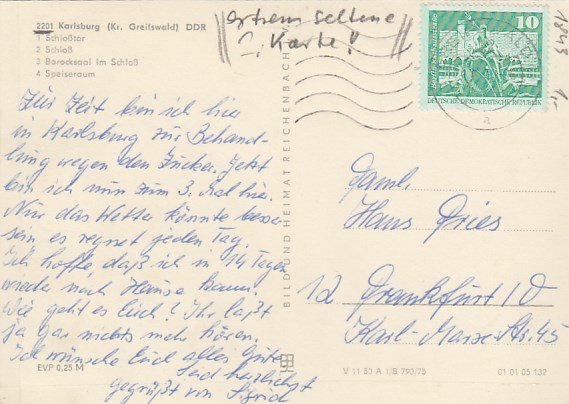 2201 Karlsburg (Kr. Greifswald) DDR
1 Schloßtor
2 Schloß
3 Barocksaal im Schloß
4 Speiseraum
extrem seltene
Karte!
10
DEUTSCHE DEMOKRATISCHE REPUBLIK
a
1.-
Zur Zeit bin ich hier
in Karlsburg zur Behand-
lung wegen den Zucker. Jetzt
bin ich nun zum 3. Mal hier.
Nur das Wetter könnte besser
sein es regnet jeden Tag.
Ich hoffe, daß ich in 14 Tagen
wieder nach Hause kann.
Wie geht es Euch? Ihr laßt
ja gar nichts mehr hören.
Ich wünsche Euch alles Gute
Seid herzlichst
gegrüßt von Sigrid
EVP 0,25 M
BILD UND HEIMAT REICHENBACH
Faml.
Hans Dries
12 Frankfurt/O
Karl-Marx-Str. 45
V 11 53 A 1/B 790/75
01 01 05 132